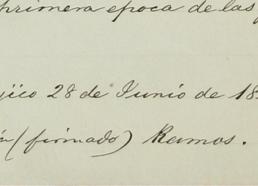 primera epoca de las
jico 28 de Junio de 18
(firmado) Ramos.